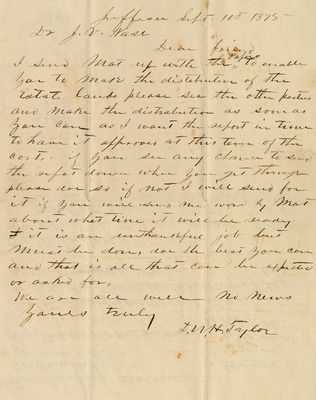 Jefferson Sept 10th 1875
Dr J. W. Ward
Dear friend
I send Mat up with the papers to enable
you to make the distribution of the
Estate lands please see the other parties
and make the distrabution as soon as
you can as I want the report in time
to have it approved at this term of the
Cort. if you see any chance to send
the report down when you get through
please do so if not I will send for
it if you will send me word by Mat
about what time it will be ready
it is an unthankful job but
must be don, do the best you can
and that is all that can be expected
or asked for,
We are all well No News
Yours truly
D.N.H. Taylor